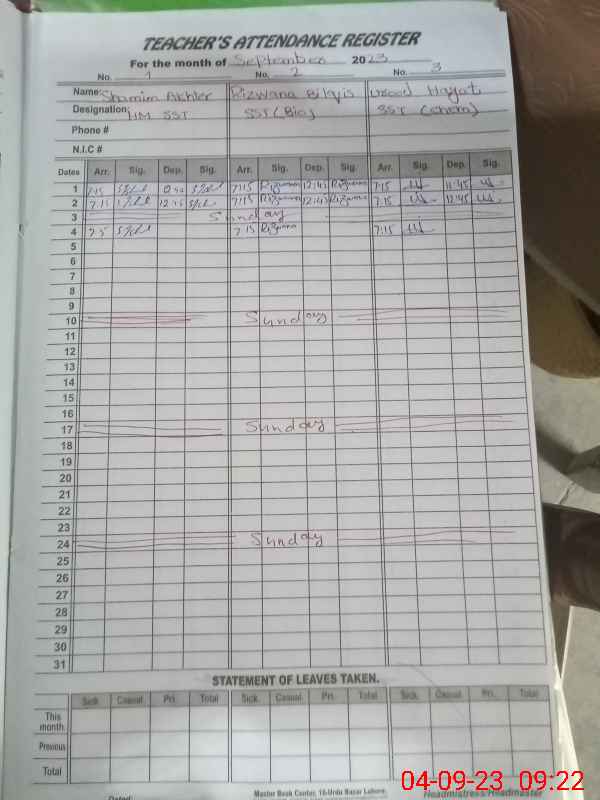 TEACHER'S ATTENDANCE REGISTER
For the month of September 2023
No. 1 No. 2 No. 3
Name: Shamim Akhter Rizwana Bilqis Hayat
Designation: HM SST SST (Bio) SST (Chem)
Phone #
N.I.C #
Dates Arr. Sig. Dep. Sig. Arr. Sig. Dep. Sig. Arr. Sig. Dep. Sig.
1 7:15 7:15 Rizwana 12:45 Rizwana 7:15 11:45
2 7:15 12:45 7:15 Rizwana 12:45 Rizwana 7:15 12:45
3 Sunday
4 7:15 Rizwana 7:15
5
6
7
8
9
10 Sunday
11
12
13
14
15
16
17 Sunday
18
19
20
21
22
23
24 Sunday
25
26
27
28
29
30
31
STATEMENT OF LEAVES TAKEN.
Sick. Casual. Pri. Total Sick. Casual. Pri. Total Sick. Casual. Pri. Total
This month
Previous
Total
Dated: Master Book Center, 16-Urdu Bazar Lahore. Headmistress/Headmaster
04-09-23 09:22